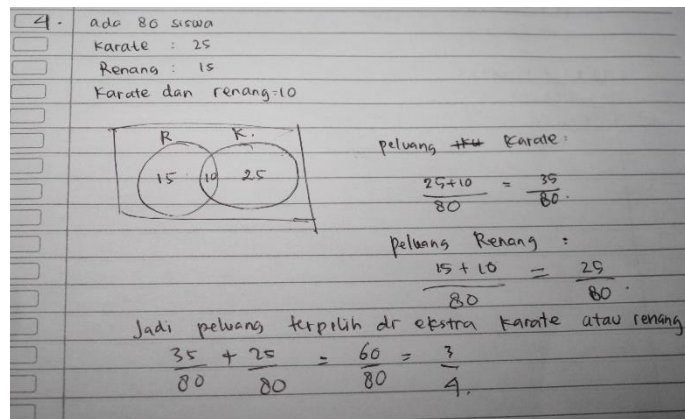 4. ada 80 siswa
Karate : 25
Renang : 15
Karate dan renang=10
R K.
15 10 25
peluang Karate:
25+10 / 80 = 35 / 80.
peluang Renang :
15 + 10 / 80 = 25 / 80.
Jadi peluang terpilih dr ekstra karate atau renang
35 / 80 + 25 / 80 = 60 / 80 = 3 / 4.